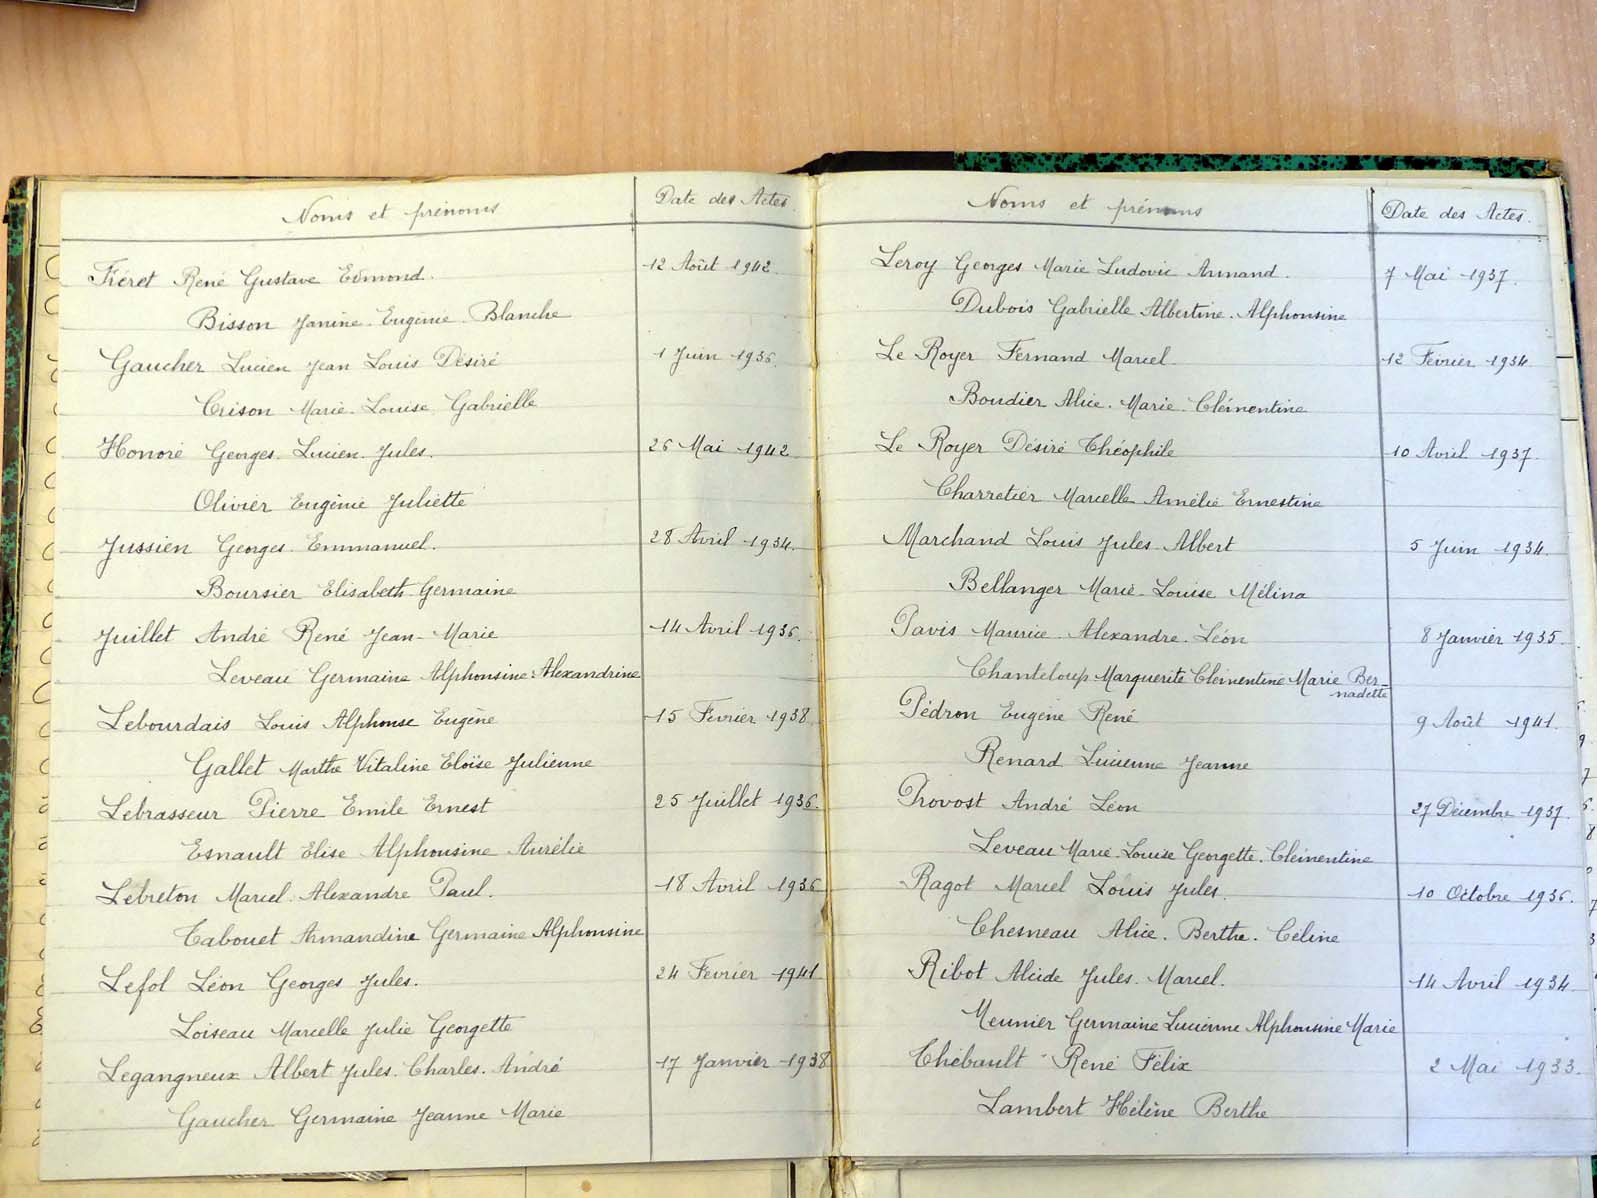 Noms et prénoms Date des Actes
Féret René Gustave Edmond. 12 Août 1942.
Bisson Janine Eugénie Blanche
Gaucher Lucien Jean Louis Désiré 1 Juin 1936.
Crison Marie Louise Gabrielle
Honoré Georges Lucien Jules. 26 Mai 1942
Olivier Eugénie Juliette
Jussien Georges Emmanuel. 28 Avril 1934.
Boursier Elisabeth Germaine
Juillet André René Jean-Marie 14 Avril 1936.
Leveau Germaine Alphonsine Alexandrine
Lebourdais Louis Alphonse Eugène 15 Février 1938
Gallet Marthe Vitaline Eloïse Julienne
Lebrasseur Pierre Emile Ernest 25 Juillet 1936.
Esnault Elise Alphonsine Aurélie
Lebreton Marcel Alexandre Paul. 18 Avril 1936
Tabouet Armandine Germaine Alphonsine
Lefol Léon Georges Jules. 24 Février 1941
Loiseau Marcelle Julie Georgette
Legangneux Albert Jules Charles André 17 Janvier 1938
Gaucher Germaine Jeanne Marie
Noms et prénoms Date des Actes.
Leroy Georges Marie Ludovic Armand. 7 Mai 1937.
Dubois Gabrielle Albertine Alphonsine
Le Royer Fernand Marcel 12 Février 1934.
Boudier Alice Marie Clémentine
Le Royer Désiré Théophile 10 Avril 1937.
Charretier Marcelle Amélie Ernestine
Marchand Louis Jules Albert 5 Juin 1934.
Bellanger Marie-Louise Mélina
Pavis Maurice Alexandre Léon 8 Janvier 1935.
Chanteloup Marguerite Clémentine Marie Ber-
nadette
Pédron Eugène René 9 Août 1941.
Renard Lucienne Jeanne
Provost André Léon 27 Décembre 1937.
Leveau Marie Louise Georgette Clémentine
Ragot Marcel Louis Jules. 10 Octobre 1936.
Chesneau Alice Berthe Céline
Ribot Alcide Jules Marcel. 14 Avril 1934.
Meunier Germaine Lucienne Alphonsine Marie
Thébault René Félix 2 Mai 1933.
Lambert Hélène Berthe